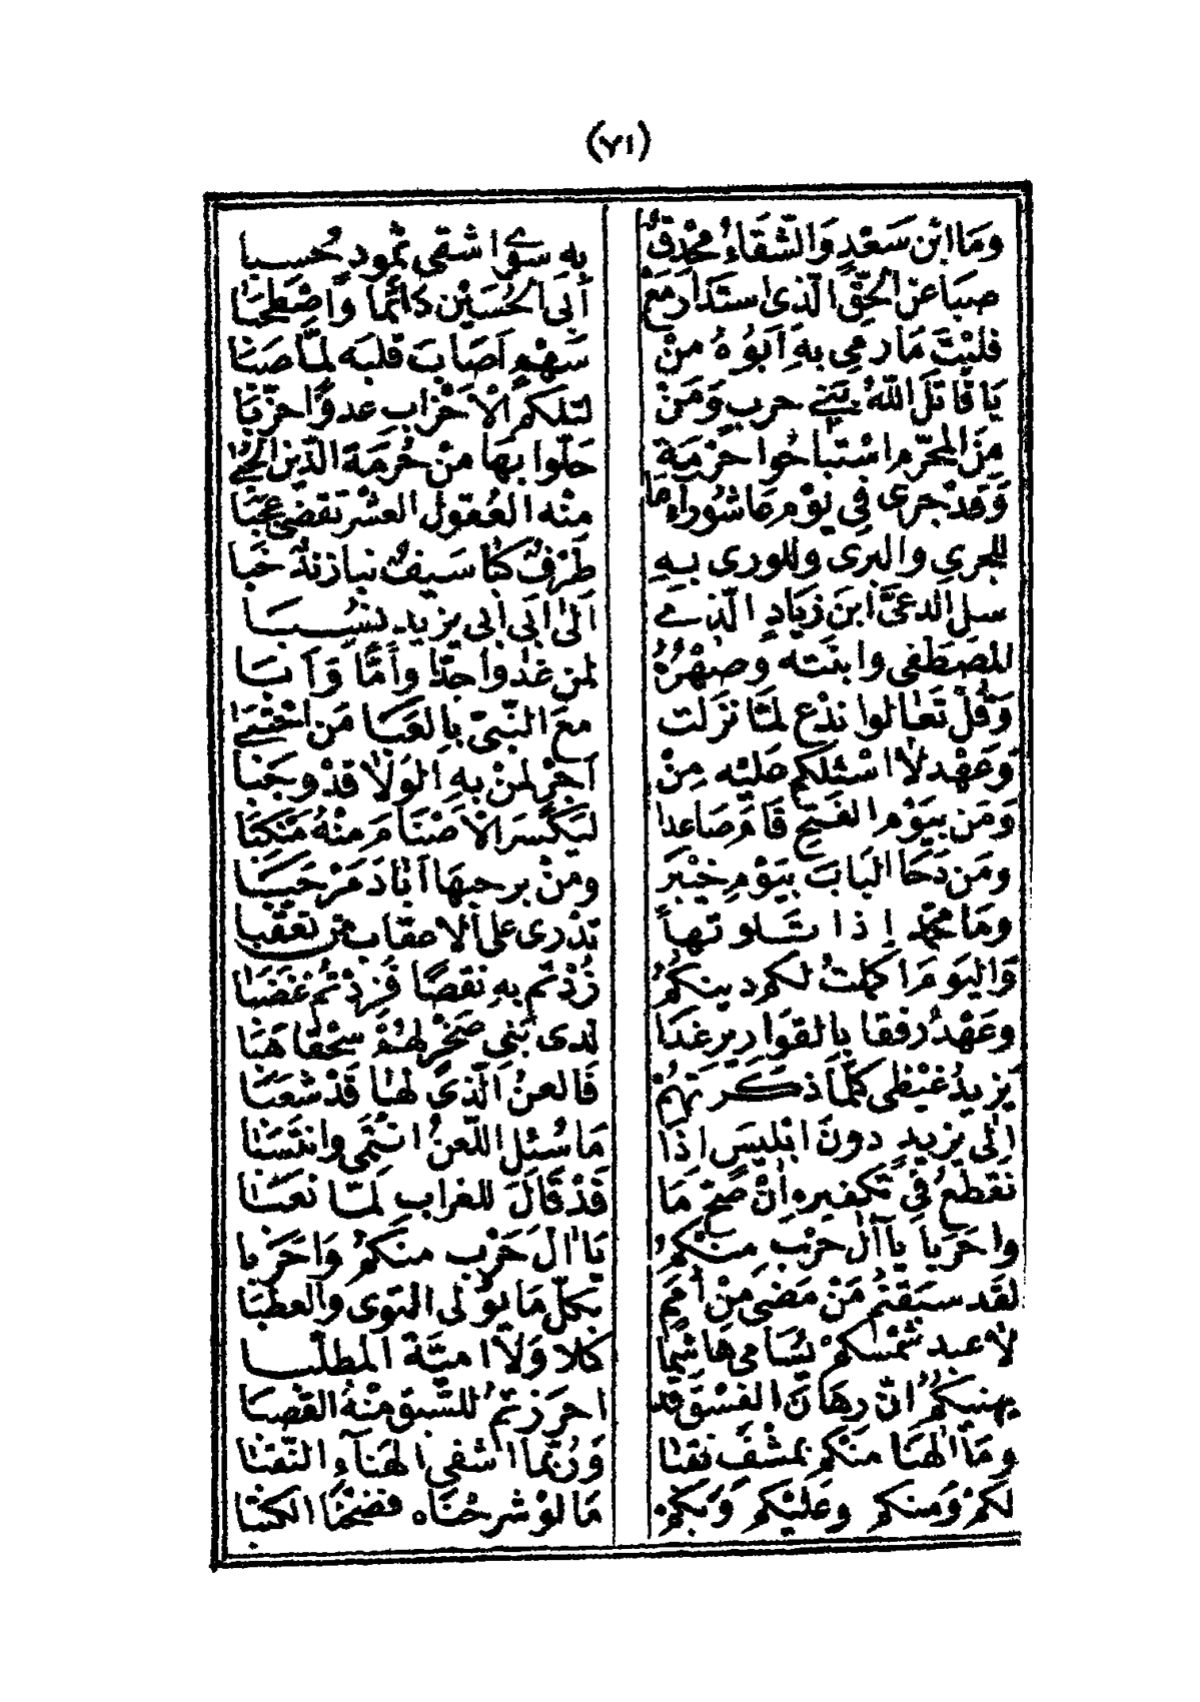 (٧١)
وَمَا ابْن سَعْدٍ وَالشَّقَاءُ مُحْدِقٌ به سوى اشقى ثمود حُسبا
صبا عن الحقّ الّذى استدار مع أبى الحُسَيْن دائما وَاصْطحبا
فليْتَ مَا رمى بهِ اَبُوهُ منْ سَهْمٍ اَصَابَ قلبَه لمّا صبا
يَا قَاتَلَ اللّهُ بنى حربٍ وَمَنْ لتلكم الاَحْزاب عدوًا حزّبا
مِنَ المُحرّم استباحُوا حَرْمَةً حَلّوا بهَا منْ حُرمَة الدّين الحُبى
وَقدْ جرى فِي يوْمِ عَاشُورآءِ مَا منْه العُقول العشْر تقضى عجَبا
للجرىِ والبرى وللورى بهِ طَرْفٌ كبَا سَيفٌ نبا زندٌ خَبا
سل الدعىَّ ابنَ زيَادٍ الّذى اَلى ابى ابى يزيد نسُبا
للمصطفى وابنته وصهْرهُ لمن غدوا جدّا وأمًّا وَاَبَا
وَقُلْ تَعالوا ندْع لمّا نزلت معَ النّبىّ بالعبَا مَن اجْتبى
وعَهْد لا اسْئلكم عليْه مِنْ اَجْر لمنْ بهِ الوَلا قدْ وجَبا
وَمَن بيَوْم الفتح قَامَ صَاعدا ليَكْسرَ الاَصْنَامَ منْهُ مَنْكبَا
ومَن دَحَا البَابَ بيَوْمِ خيْبَر ومنْ برحبهَا اَبَادَ مَرْحَبا
وَمَا محمّد إذا تَلوتهاً تدْرى على الاعقاب من تعقّبا
وَاليومَ اكملتُ لكم دينكمُ زُدْتم به نقصًا فَزِدْتُم غضَبا
وعَهْدُ رفقا بالقوارير غدَا لدى بَنى صَخْرٍ لهنّ سحْقا هَبا
يَزيدُ غيْظى كلّمَا ذكرتهُمْ فَالعنُ الّذى لهَا قَدْ شعَبا
الى يزيد دونَ ابْليسَ اذا مَا سُئِل اللّعنُ انْتمى وانتسَبا
نَقطعُ فى تكفيره اِنْ صحّ مَا قَدْ قَالَ للغراب لمّا نعبَا
واحَربا يا آلَ حَرْب منكمُ يَا الَ حَرْب منكمُ وَاحَربا
لقَد سبَقتمُ مَنْ مَضى مِنْ اُمَم بكلّ مَا يؤلى التوى والعطبَا
لاَ عبد شمْسكمْ يُسَامى هَاشمًا كلا وَلاَ اميّة المطلبَا
يهنيكمُ انّ رهَانَ الفسْق قد احرَزتمُ للسَّبق منْهُ القصبَا
وَمَا الهَنا منكم بمشْفٍ نقبَا وَرُبّما اشفى الهَنآءِ النّقبَا
لكمْ وَمنكم وعَليْكم وَبكمْ مَا لوْ شرحْنَاه فضحْنَا الكتبَا